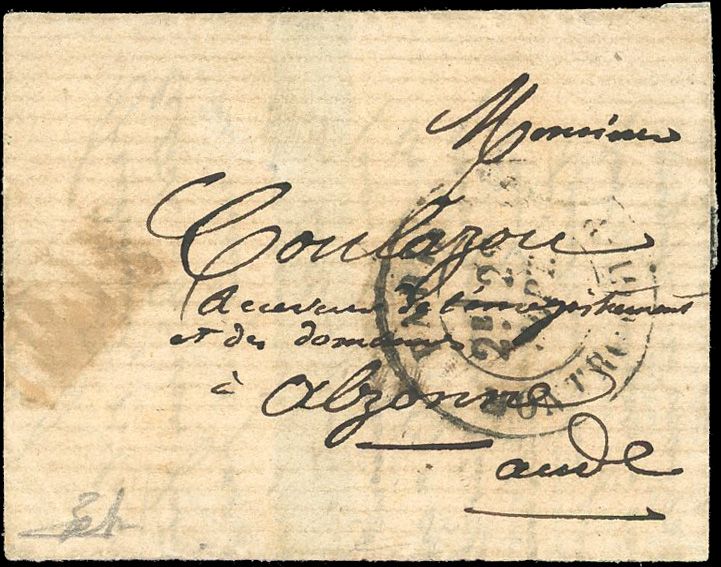 Monsieur
Coulazou
Receveur de l'enregistrement
et des domaines
à Alzonne
aude
PARIS
2E 2
SEPT.